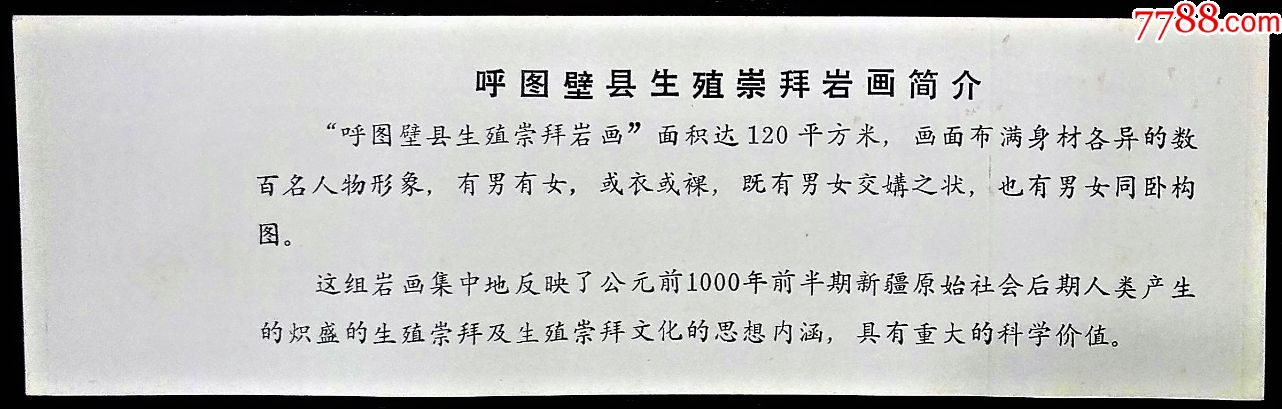 7788.com
呼图壁县生殖崇拜岩画简介
“呼图壁县生殖崇拜岩画”面积达120平方米，画面布满身材各异的数
百名人物形象，有男有女，或衣或裸，既有男女交媾之状，也有男女同卧构
图。
这组岩画集中地反映了公元前1000年前半期新疆原始社会后期人类产生
的炽盛的生殖崇拜及生殖崇拜文化的思想内涵，具有重大的科学价值。